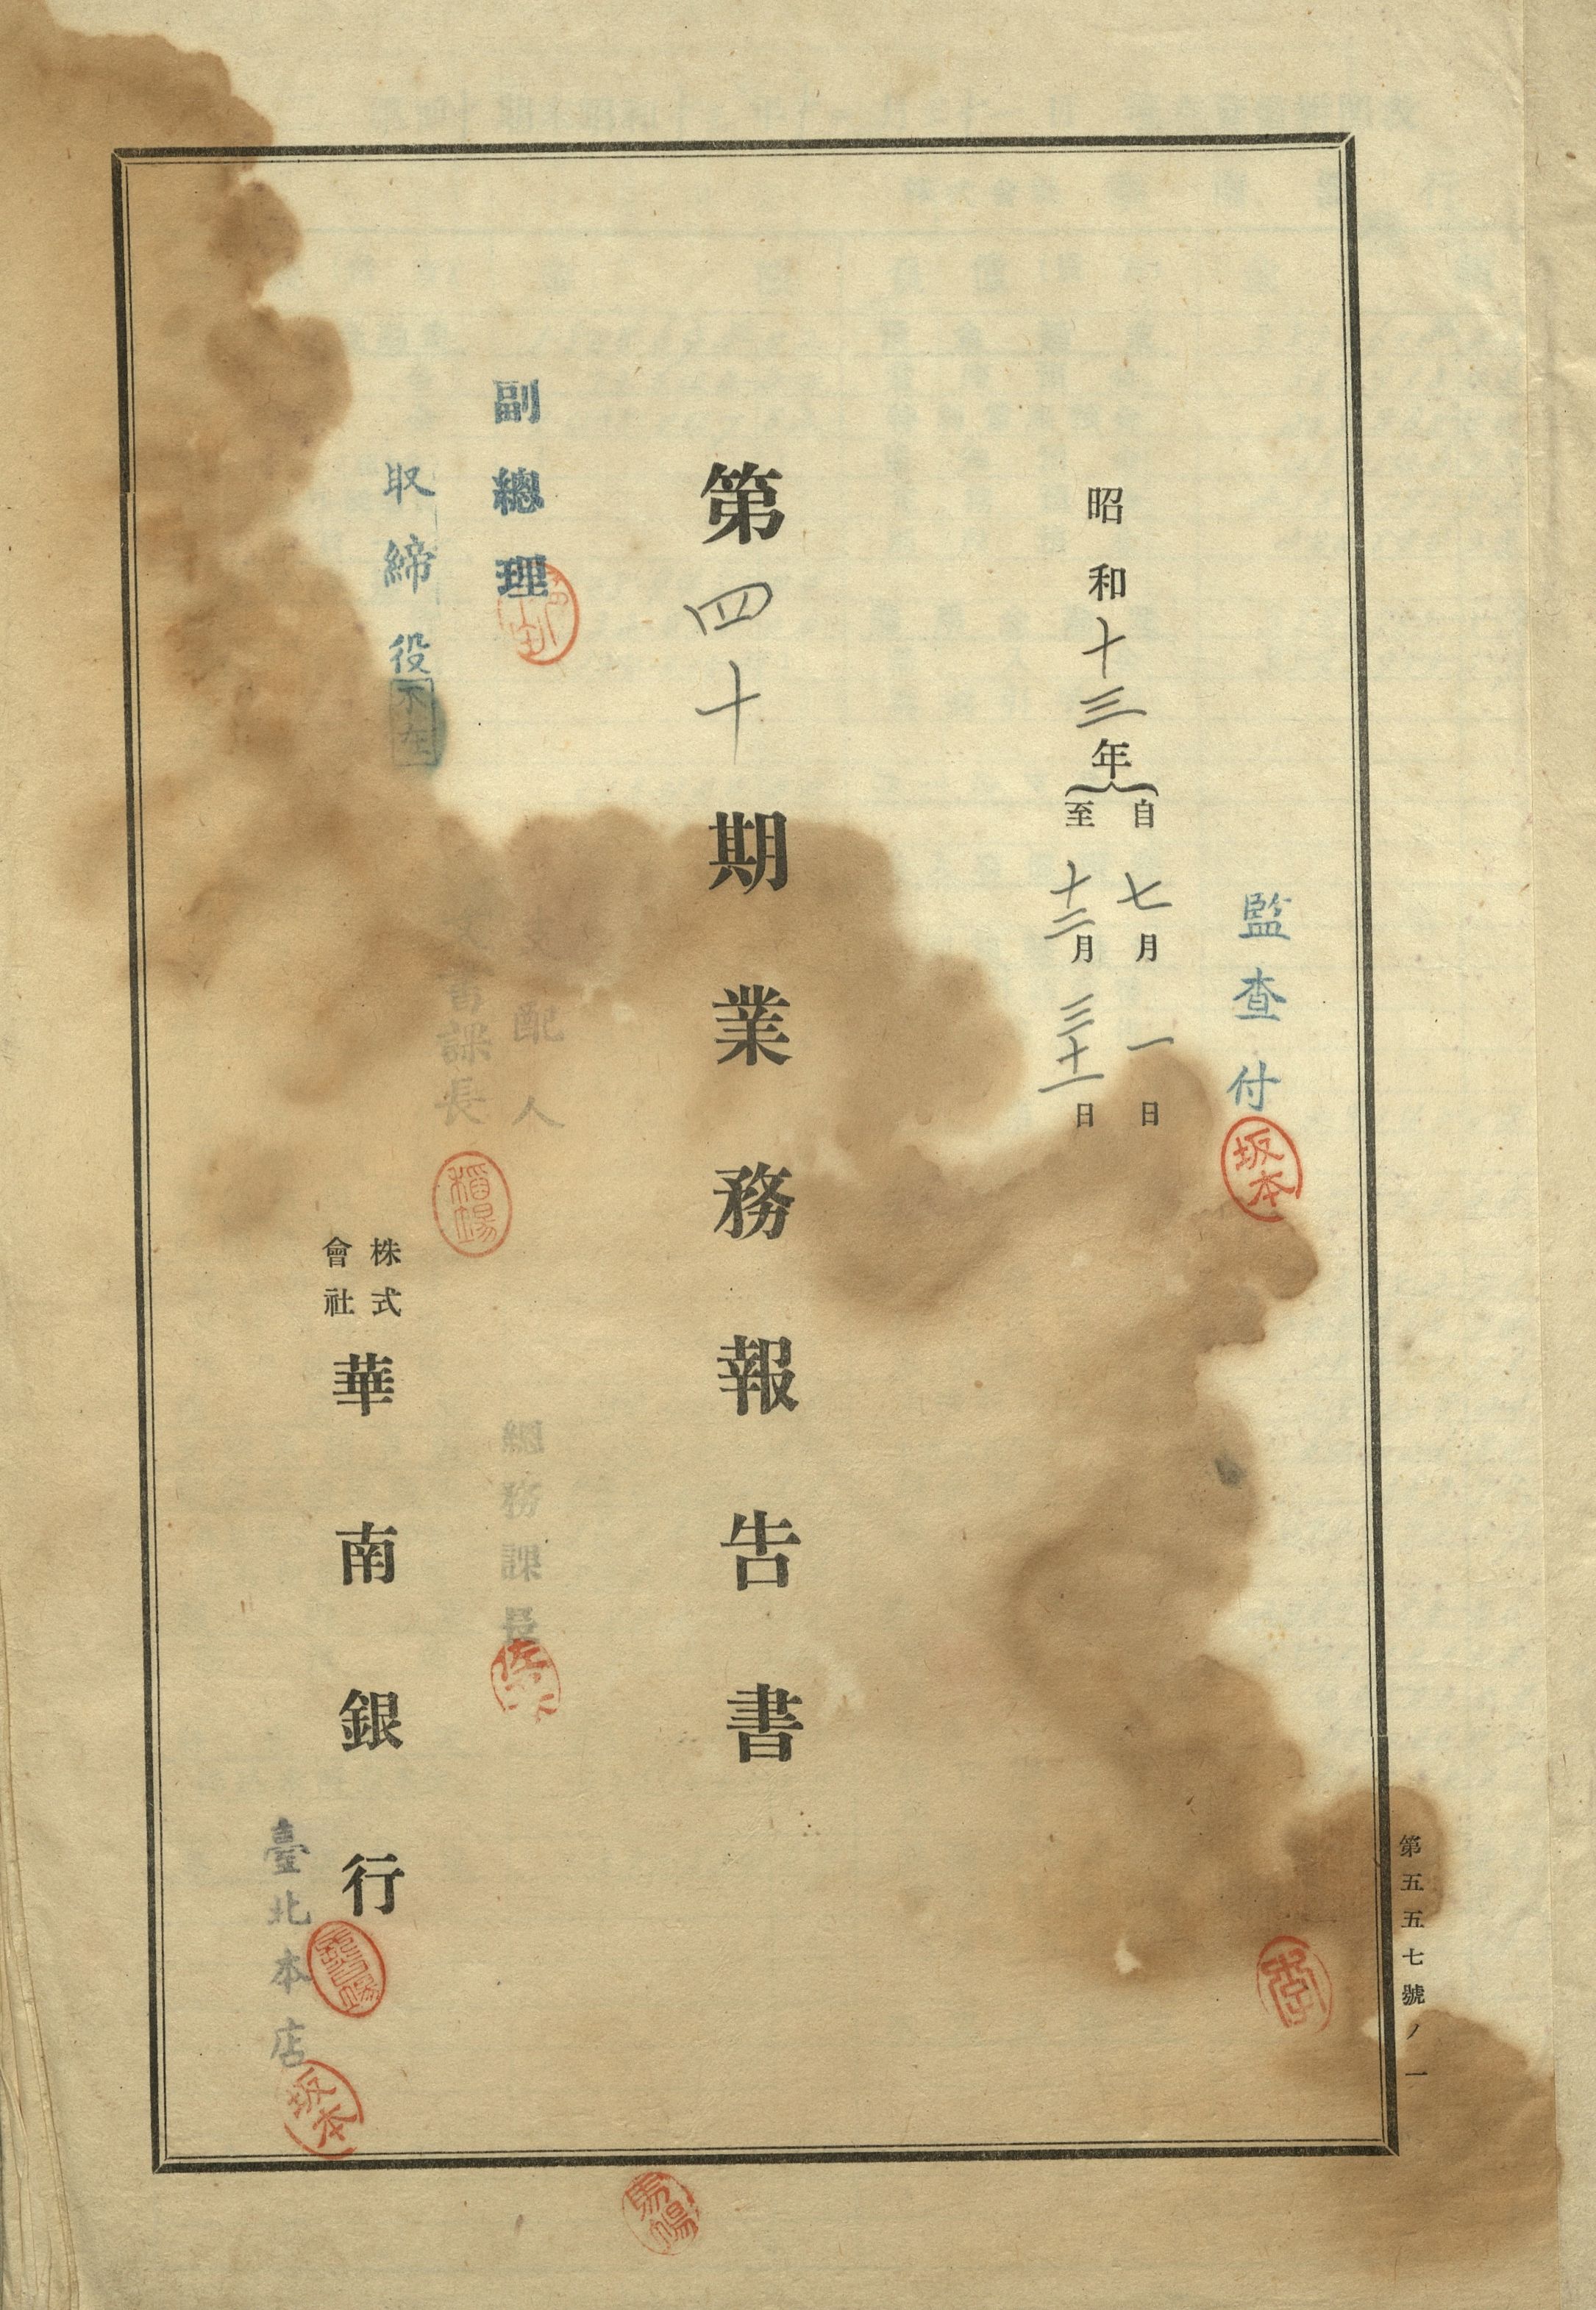 監查付
坂本
昭和十三年
自七月一日
至十二月三十一日
第四十期業務報告書
副總理
取締役
不在
支配人
書課長
稲場
總務課長
株式
會社
華南銀行
臺北本店
坂本
第五五七號ノ一